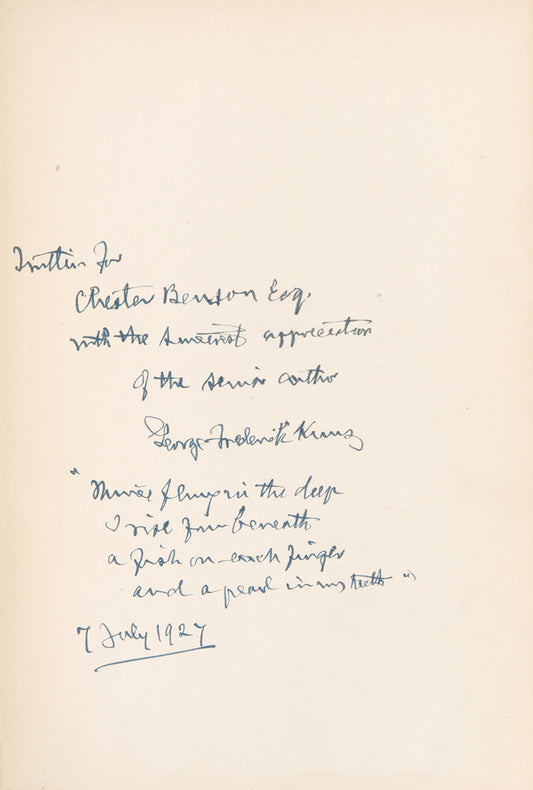 Written for
Chester Benson Esq.
with the sincerest appreciation
of the senior author
George Frederick Kunz
" in the deep
I rise from beneath
a fish on each finger
and a pearl in my teeth "
7 July 1927